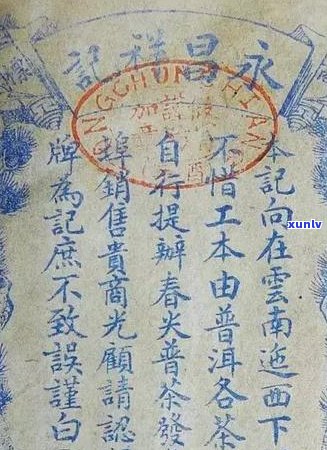 永昌祥記
本記向在雲南迤西下
不惜工本由普洱各茶
自行提辦春尖普茶發
埠銷售貴商光顧請認
牌為記庶不致誤謹白
xunlv